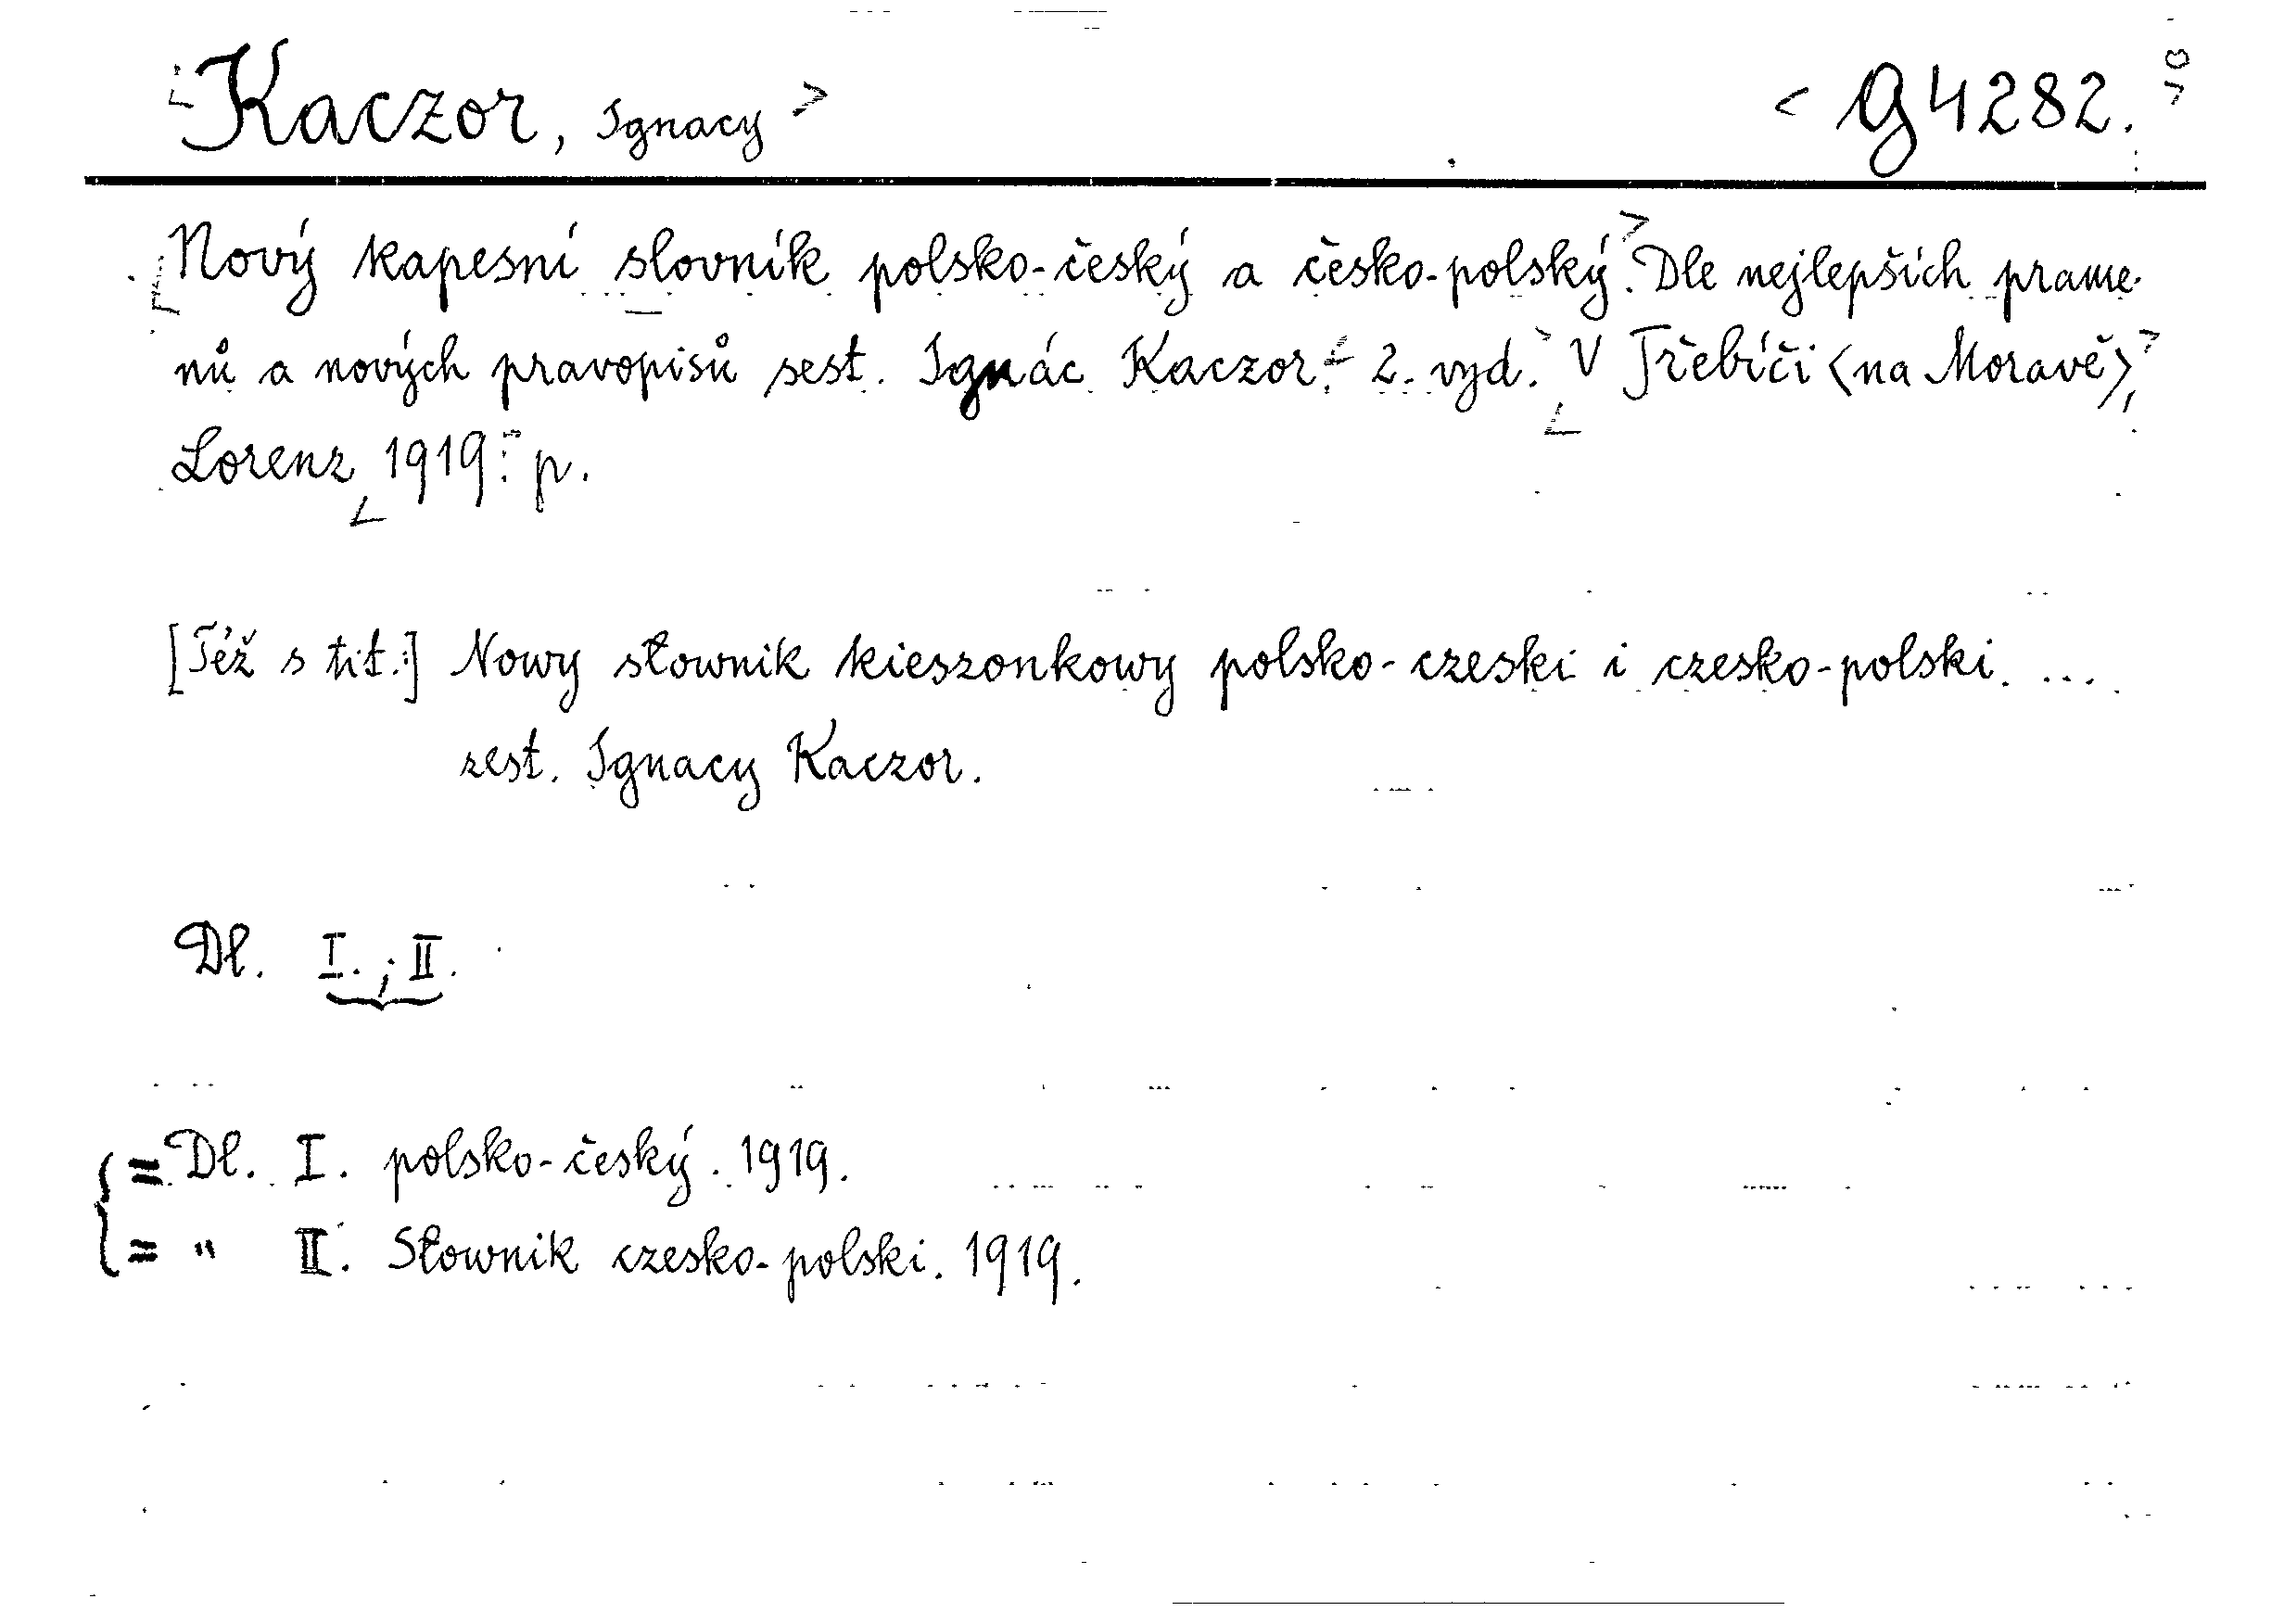 Kaczor, Ignacy
G 4282.
Nový kapesní slovník polsko-český a česko-polský. Dle nejlepších prame-
nů a nových pravopisů sest. Ignác Kaczor. 2. vyd. V Třebíči (na Moravě),
Lorenz 1919. p.
[Též s tit.:] Nowy słownik kieszonkowy polsko-czeski i czesko-polski. ...
zest. Ignacy Kaczor.
Dl. I. ; II.
= Dl. I. polsko-český. 1919.
= " II. Słownik czesko-polski. 1919.